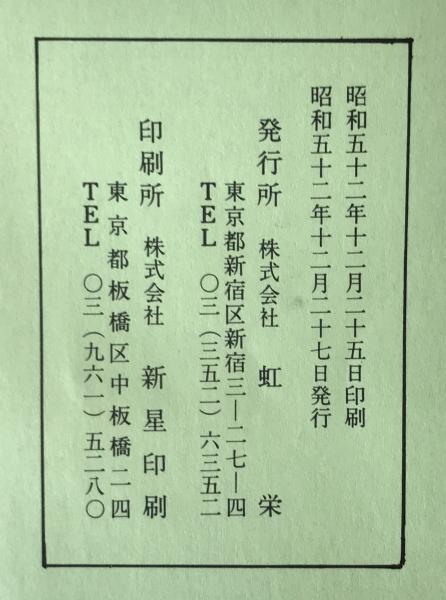 昭和五十二年十二月二十五日印刷
昭和五十二年十二月二十七日発行
発行所 株式会社 虹栄
東京都新宿区新宿三―二七―四
TEL 〇三(三五二)六三五二
印刷所 株式会社 新星印刷
東京都板橋区中板橋二四
TEL 〇三(九六一)五二八〇